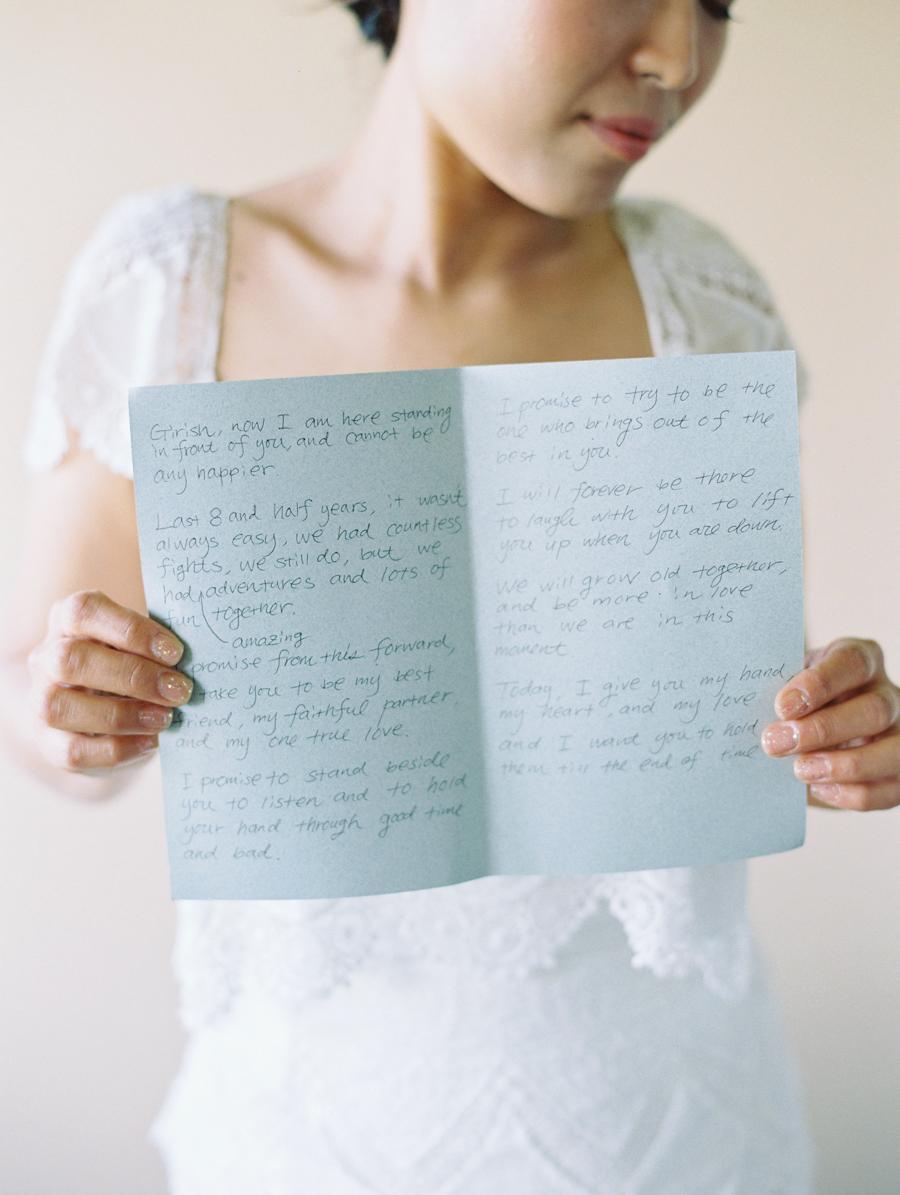 Girish, now I am here standing
in front of you, and cannot be
any happier.
Last 8 and half years, it wasn't
always easy, we had countless
fights, we still do, but we
had adventures and lots of
fun together.
amazing
promise from this forward,
take you to be my best
friend, my faithful partner
and my one true love.
I promise to stand beside
you to listen and to hold
your hand through good time
and bad.
I promise to try to be the
one who brings out of the
best in you.
I will forever be there
to laugh with you to lift
you up when you are down.
We will grow old together,
and be more in love
than we are in this
moment
Today, I give you my hand,
my heart, and my love
and I want you to hold
them till the end of time